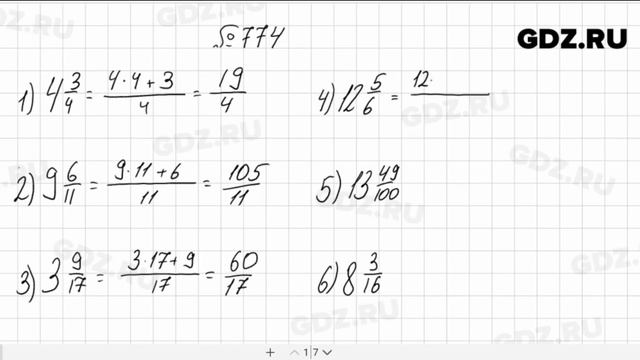 №774
GDZ.RU
1) 4 3/4 = (4·4+3)/4 = 19/4
4) 12 5/6 = 12·
2) 9 6/11 = (9·11+6)/11 = 105/11
5) 13 49/100
3) 3 9/17 = (3·17+9)/17 = 60/17
6) 8 3/16
GDZ.RU
GDZ.RU
GDZ.RU
GDZ.RU
GDZ.RU
1|7